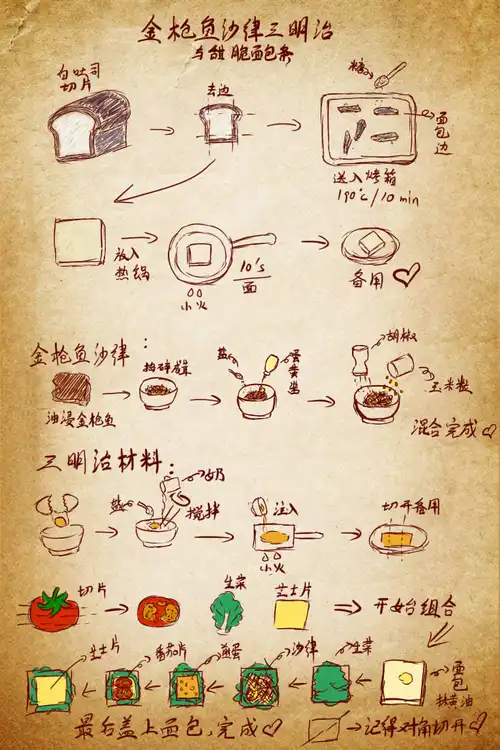 金枪鱼沙律三明治
与甜脆面包条
白吐司
切片
去边
糖
面包边
送入烤箱
190℃/10 min
放入
热锅
10's
面
小火
备用
金枪鱼沙律:
油浸金枪鱼
捣碎
盐
蛋黄酱
胡椒
玉米粒
混合完成
三明治材料:
盐
奶
搅拌
注入
小火
切开备用
切片
生菜
芝士片
开始组合
芝士片
番茄片
煎蛋
沙律
生菜
面包
抹黄油
最后盖上面包,完成
记得对角切开